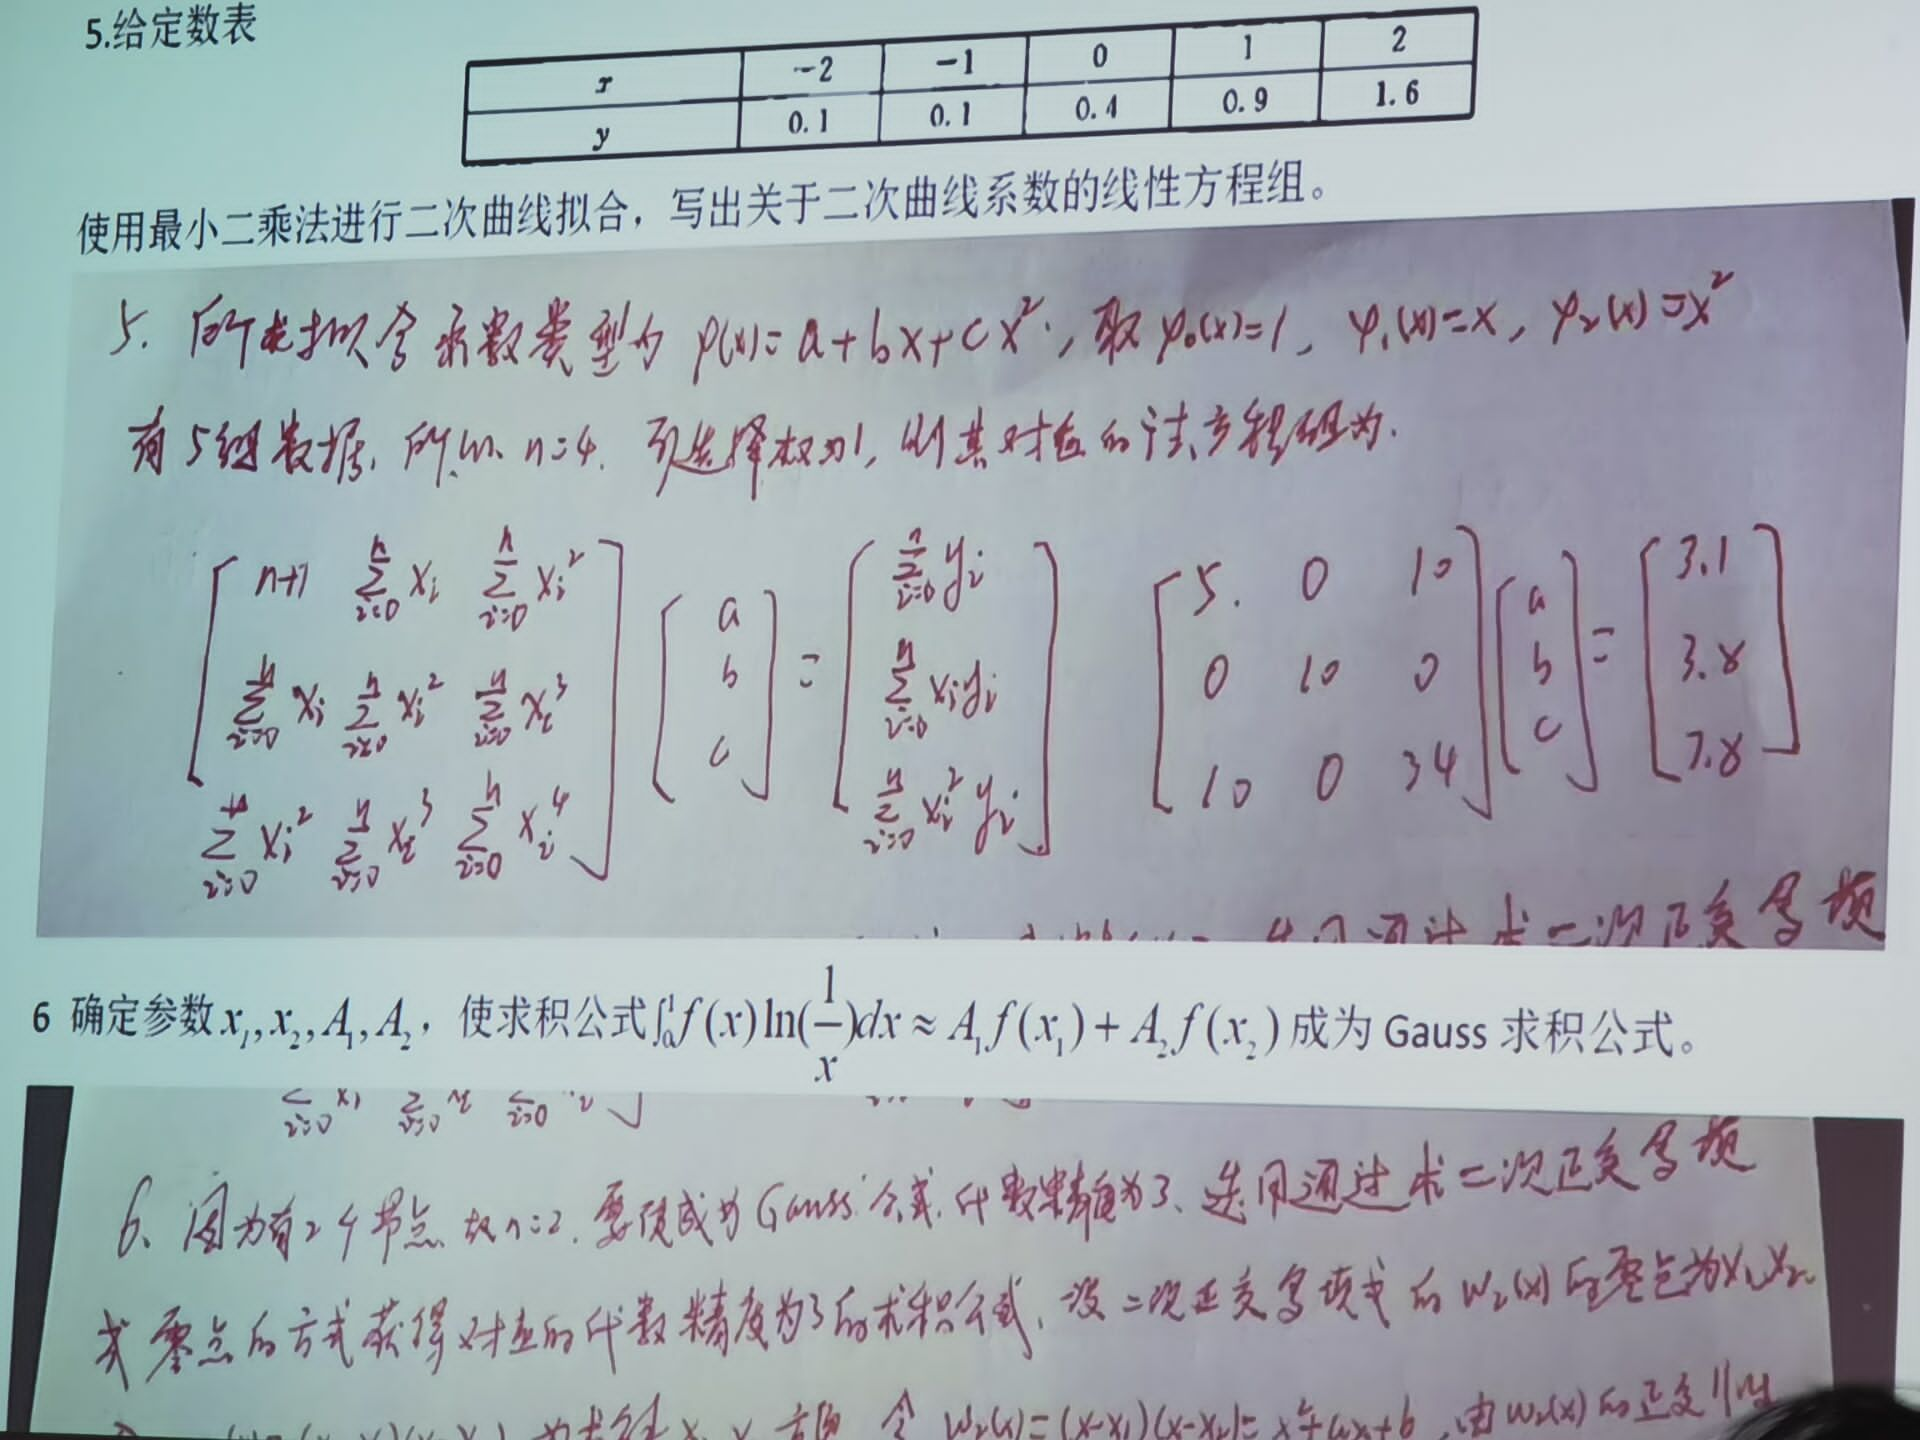 5.给定数表
x −2 −1 0 1 2
y 0.1 0.1 0.4 0.9 1.6
使用最小二乘法进行二次曲线拟合，写出关于二次曲线系数的线性方程组。
5. 所求拟合函数类型为 φ(x)=a+bx+cx², 取 φ₀(x)=1, φ₁(x)=x, φ₂(x)=x²
有5组数据, 所以 n=4. 可选择权为1, 则其对应的法方程组为.
[ n+1 ∑ᵢ₌₀ⁿ xᵢ ∑ᵢ₌₀ⁿ xᵢ² ] [ a ] = [ ∑ᵢ₌₀ⁿ yᵢ ] [ 5. 0 10 ] [ a ] = [ 3.1 ]
[ ∑ᵢ₌₀ⁿ xᵢ ∑ᵢ₌₀ⁿ xᵢ² ∑ᵢ₌₀ⁿ xᵢ³ ] [ b ] [ ∑ᵢ₌₀ⁿ xᵢyᵢ ] [ 0 10 0 ] [ b ] [ 3.8 ]
[ ∑ᵢ₌₀ⁿ xᵢ² ∑ᵢ₌₀ⁿ xᵢ³ ∑ᵢ₌₀ⁿ xᵢ⁴ ] [ c ] [ ∑ᵢ₌₀ⁿ xᵢ²yᵢ ] [ 10 0 34 ] [ c ] [ 7.8 ]
通过求二次正交多项
6 确定参数x₁,x₂,A₁,A₂，使求积公式∫₀¹f(x)ln(1/x)dx≈A₁f(x₁)+A₂f(x₂)成为Gauss求积公式。
6、因为有2个节点 故n=2. 要使成为Gauss公式, 代数精度为3、选用通过求二次正交多项
式零点的方式获得对应的代数精度为3的求积公式. 设二次正交多项式的W₂(x)的零点为x₁,x₂.
令 W₂(x)=(x-x₁)(x-x₂)=x²+ax+b, 由W₂(x)的正交